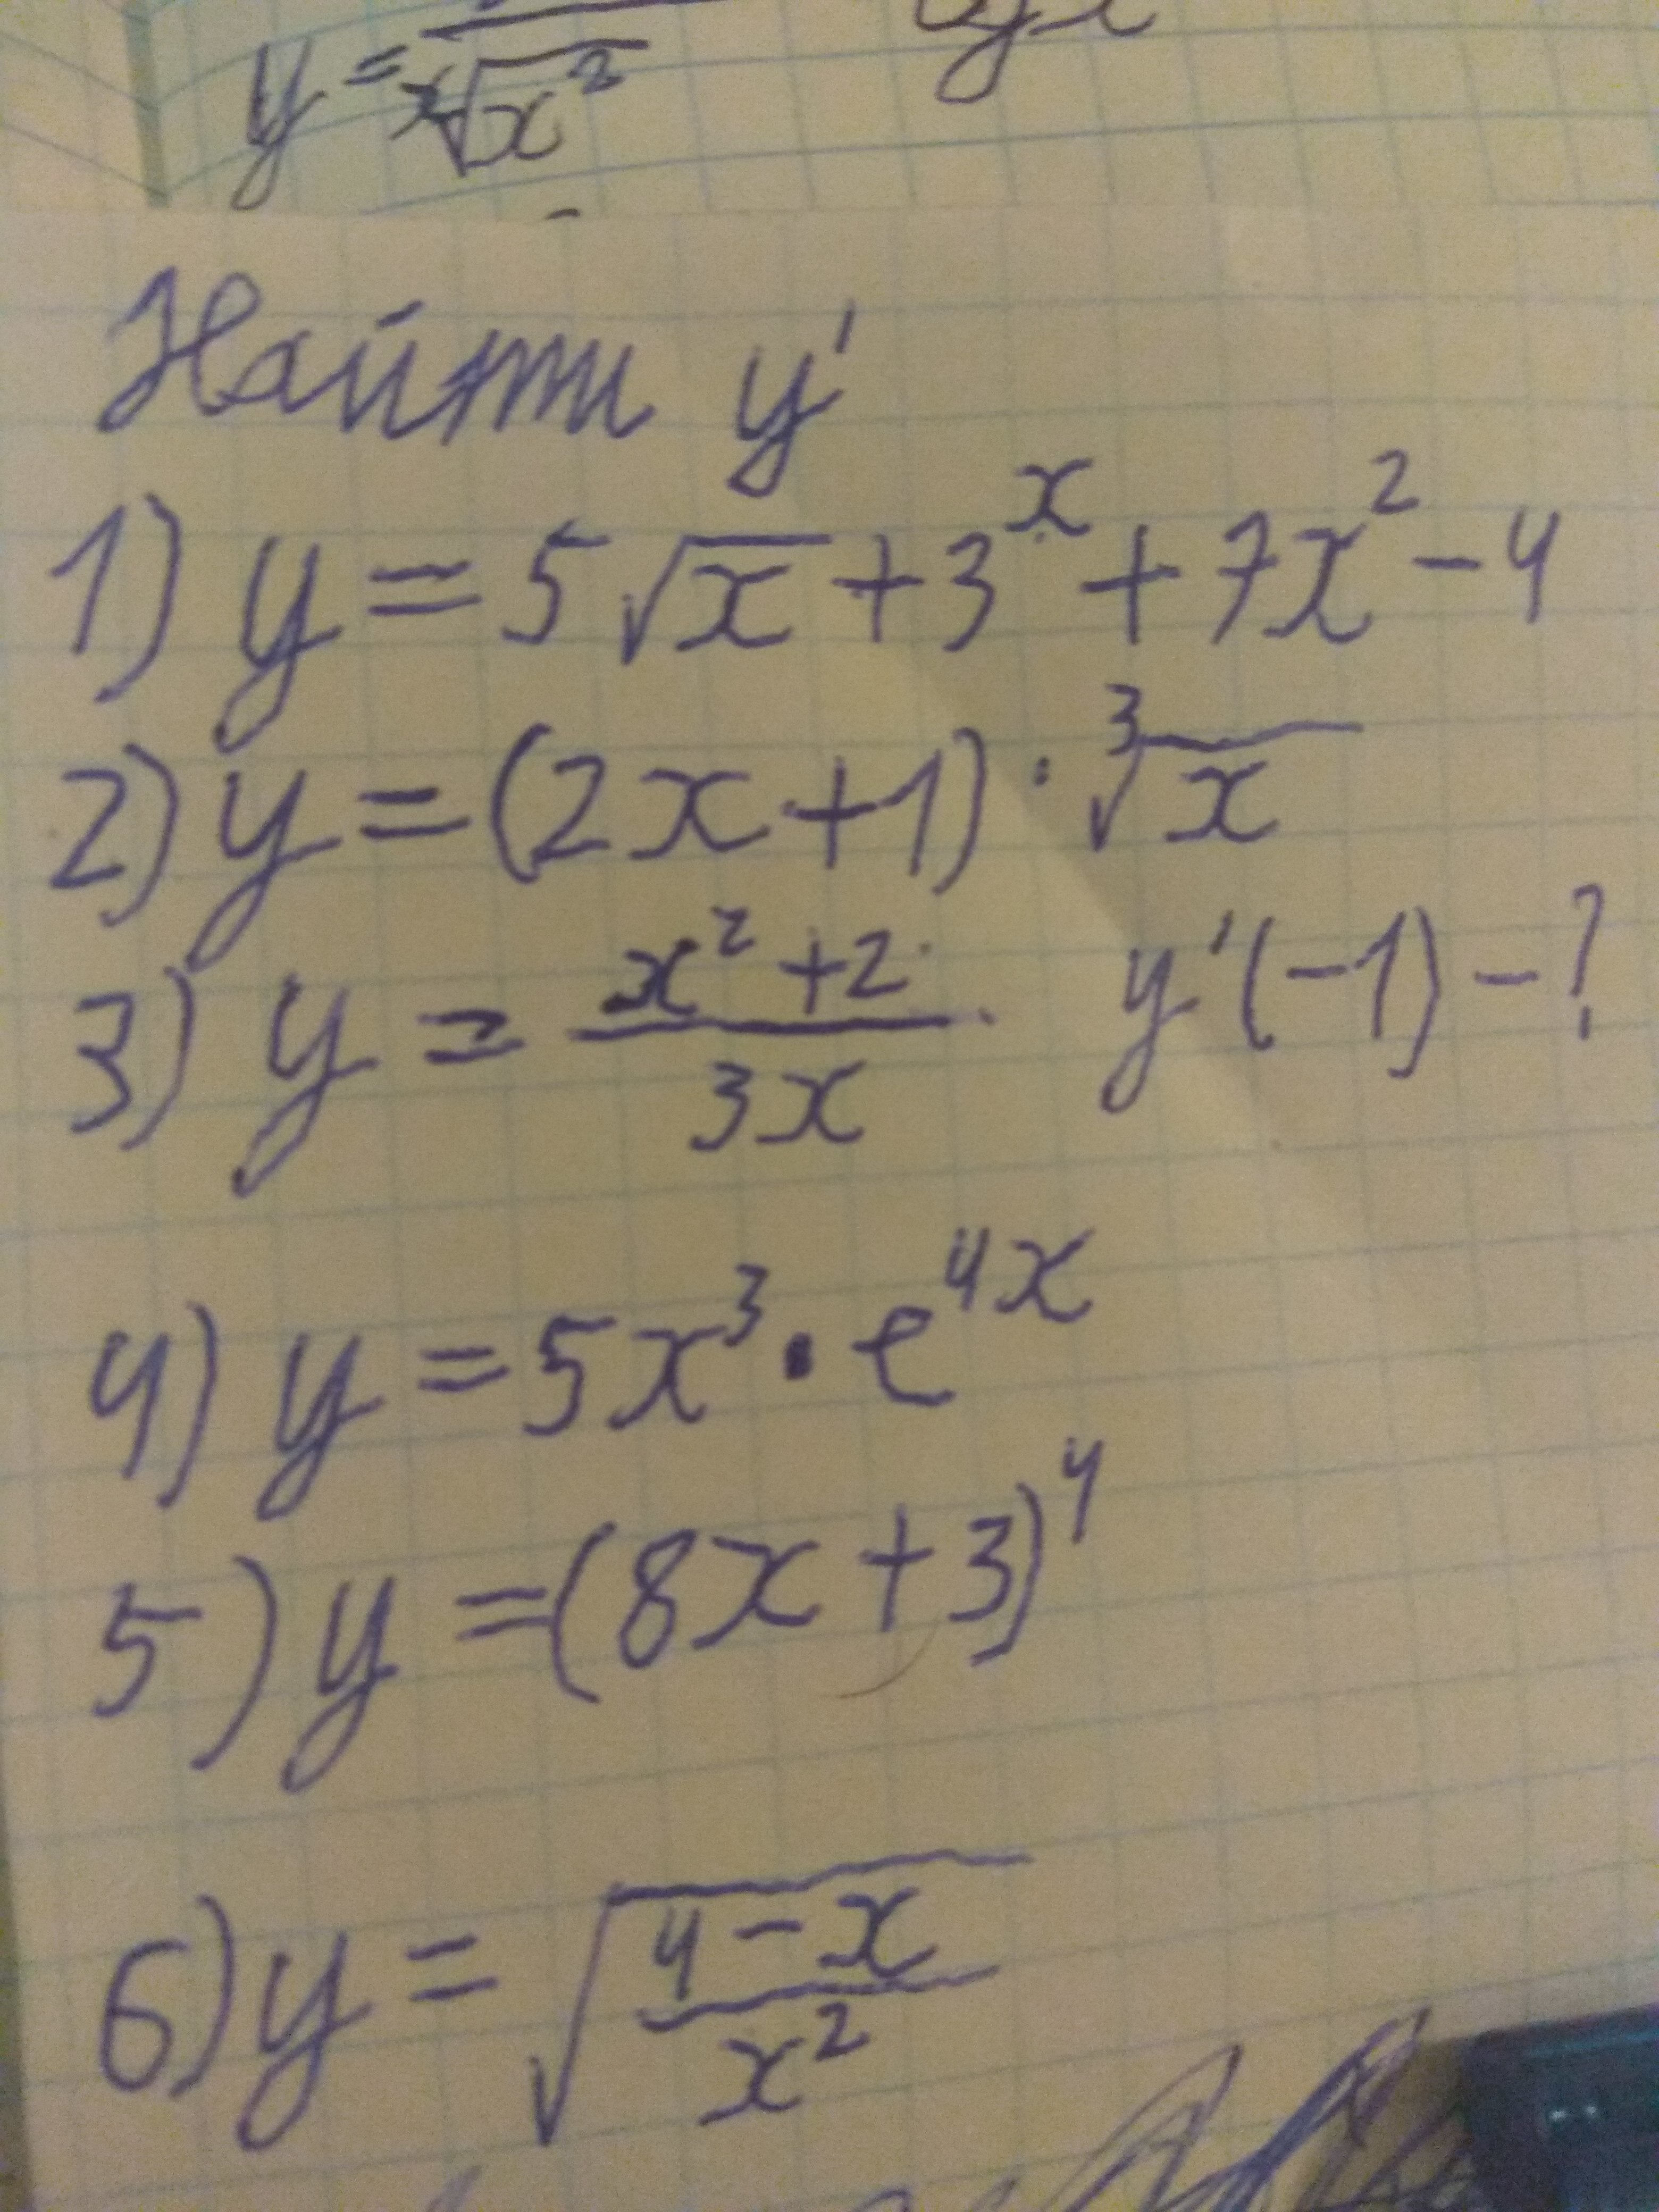 y = ∛x²
Найти y'
1) y = 5√x + 3ˣ + 7x² - 4
2) y = (2x+1) · ∛x
3) y = (x²+2)/(3x) y'(-1) - ?
4) y = 5x³ · e⁴ˣ
5) y = (8x+3)⁴
6) y = √((4-x)/x²)